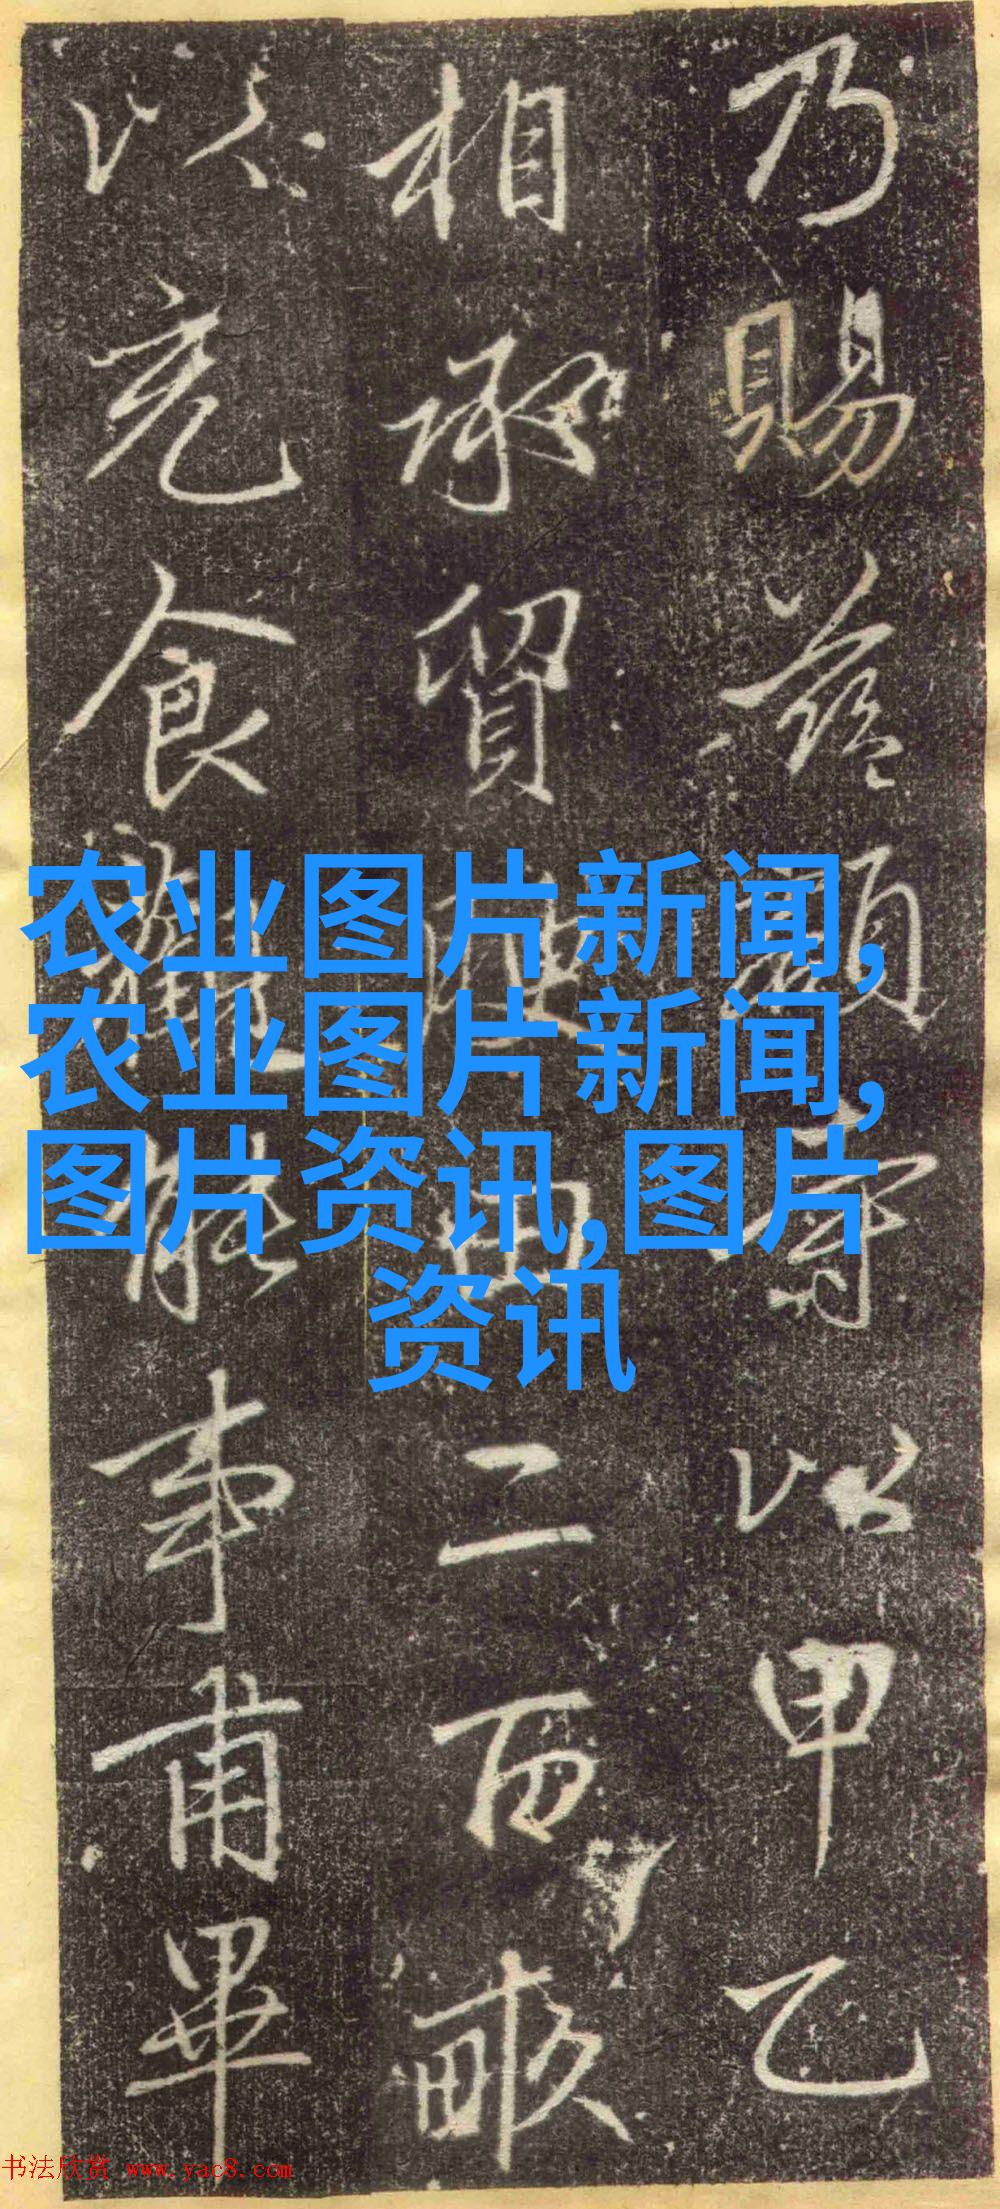 乃賜 以甲乙
相承貿腴田二百畝
以充食 能事甫畢
农业图片新闻,
农业图片新闻,
图片资讯,图片
资讯
书法欣赏 www.yac8.com